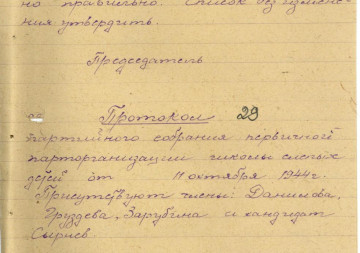 но правильно. Список без измене-
ния утвердить.
Председатель
Протокол 29
партийного собрания первичной
парторганизации школы слепых
детей от 11 октября 1944г.
Присутствуют члены: Данилова,
Груздева, Зарубина и кандидат
Сыриев